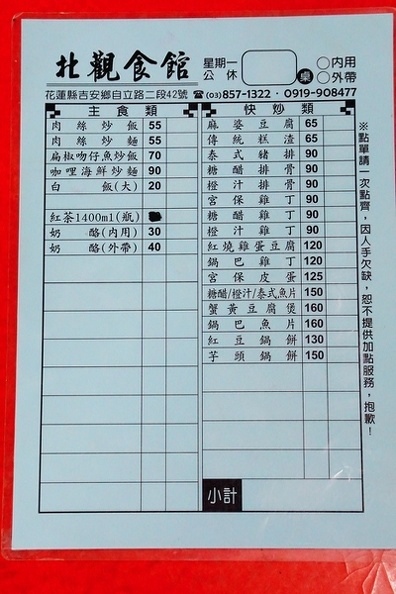 北觀食館
星期一
公休
桌
○內用
○外帶
花蓮縣吉安鄉自立路二段42號 ☎(03)857-1322‧0919-908477
主食類
肉絲炒飯 55
肉絲炒麵 55
扁椒吻仔魚炒飯 70
咖哩海鮮炒麵 90
白飯(大) 20
紅茶1400ml(瓶)
奶酪(內用) 30
奶酪(外帶) 40
快炒類
麻婆豆腐 65
傳統糕渣 65
泰式豬排 90
糖醋排骨 90
橙汁排骨 90
宮保雞丁 90
糖醋雞丁 90
橙汁雞丁 90
紅燒雞蛋豆腐 120
鍋巴雞丁 120
宮保皮蛋 125
糖醋/橙汁/泰式魚片 150
蟹黃豆腐煲 160
鍋巴魚片 160
紅豆鍋餅 130
芋頭鍋餅 150
小計
※點單請一次點齊，因人手欠缺，恕不提供加點服務，抱歉！